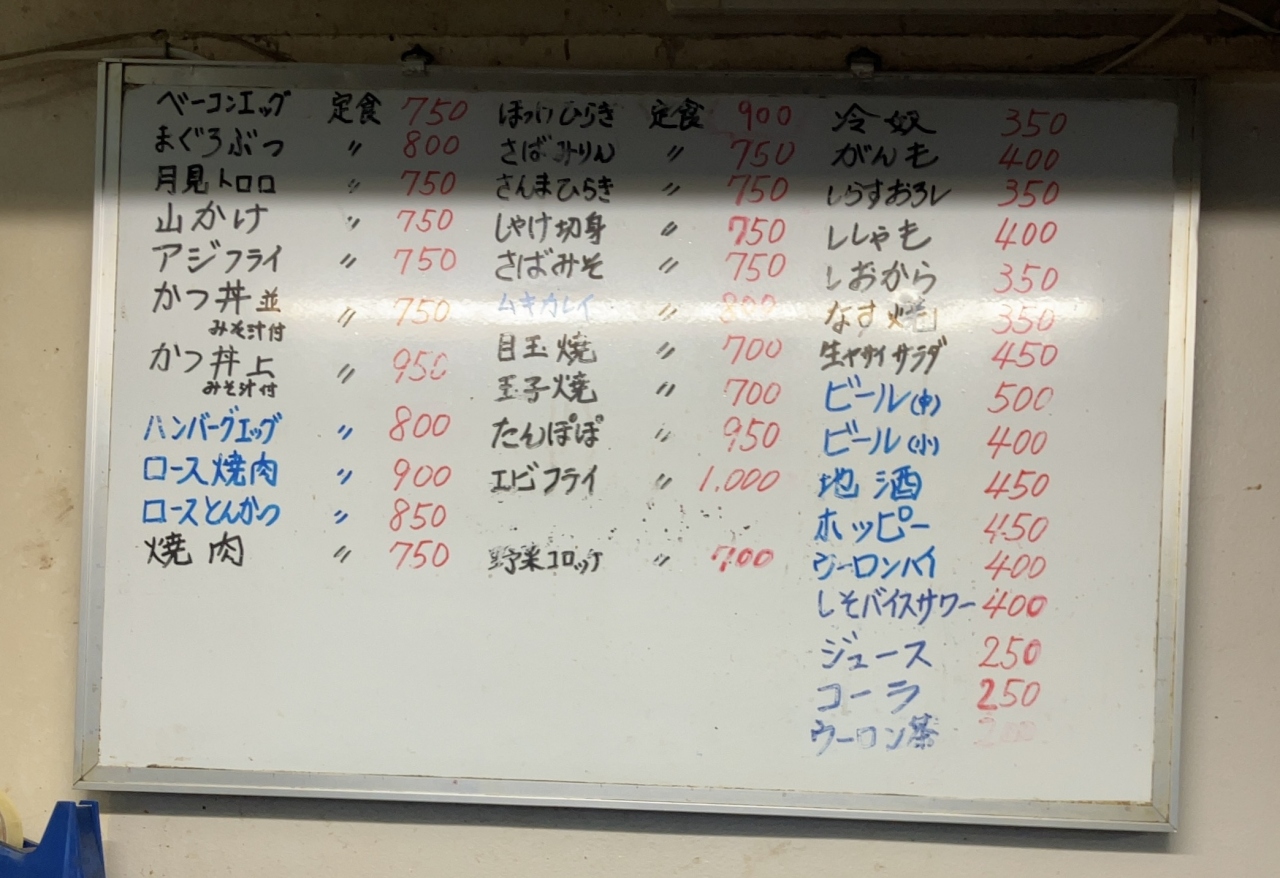 ベーコンエッグ 定食 750
まぐろぶつ 〃 800
月見トロロ 〃 750
山かけ 〃 750
アジフライ 〃 750
かつ丼並 〃 750
みそ汁付
かつ丼上 〃 950
みそ汁付
ハンバーグエッグ 〃 800
ロース焼肉 〃 900
ロースとんかつ 〃 850
焼肉 〃 750
ほっけひらき 定食 900
さばみりん 〃 750
さんまひらき 〃 750
しゃけ切身 〃 750
さばみそ 〃 750
ムキカレイ 〃 800
目玉焼 〃 700
玉子焼 〃 700
たんぽぽ 〃 950
エビフライ 〃 1,000
野菜コロッケ 〃 700
冷奴 350
がんも 400
しらすおろし 350
ししゃも 400
しおから 350
なす焼 350
生ヤサイサラダ 450
ビール(中) 500
ビール(小) 400
地酒 450
ホッピー 450
ウーロンハイ 400
しそバイスサワー 400
ジュース 250
コーラ 250
ウーロン茶